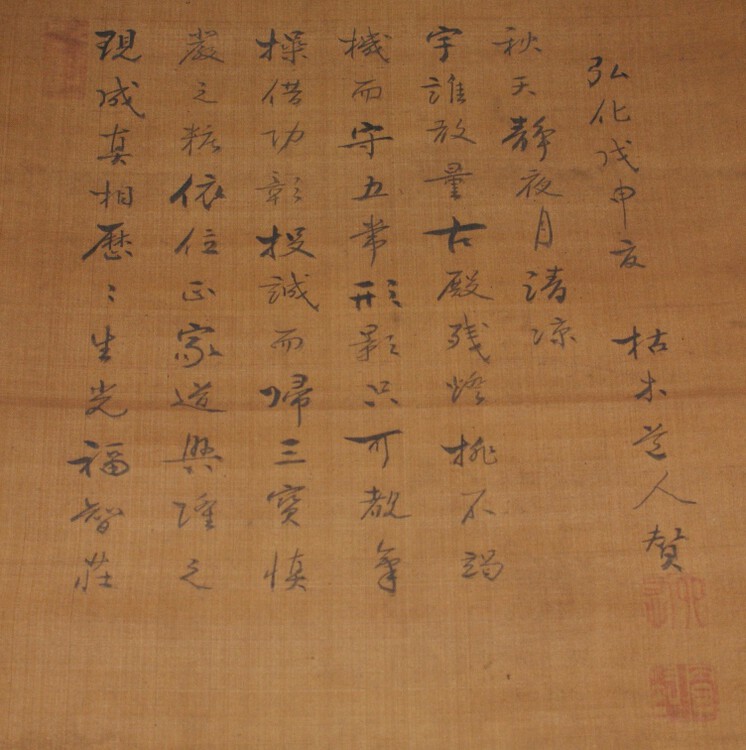 現成真相歴〻生光福智荘
嚴之粧依位正家道興隆之
操借功彰投誠而帰三寳慎
機而守五常形影只可覩氣
宇誰放量古殿残燈挑不竭
秋天靜夜月清凉
弘化戊申夏 枯木道人賛